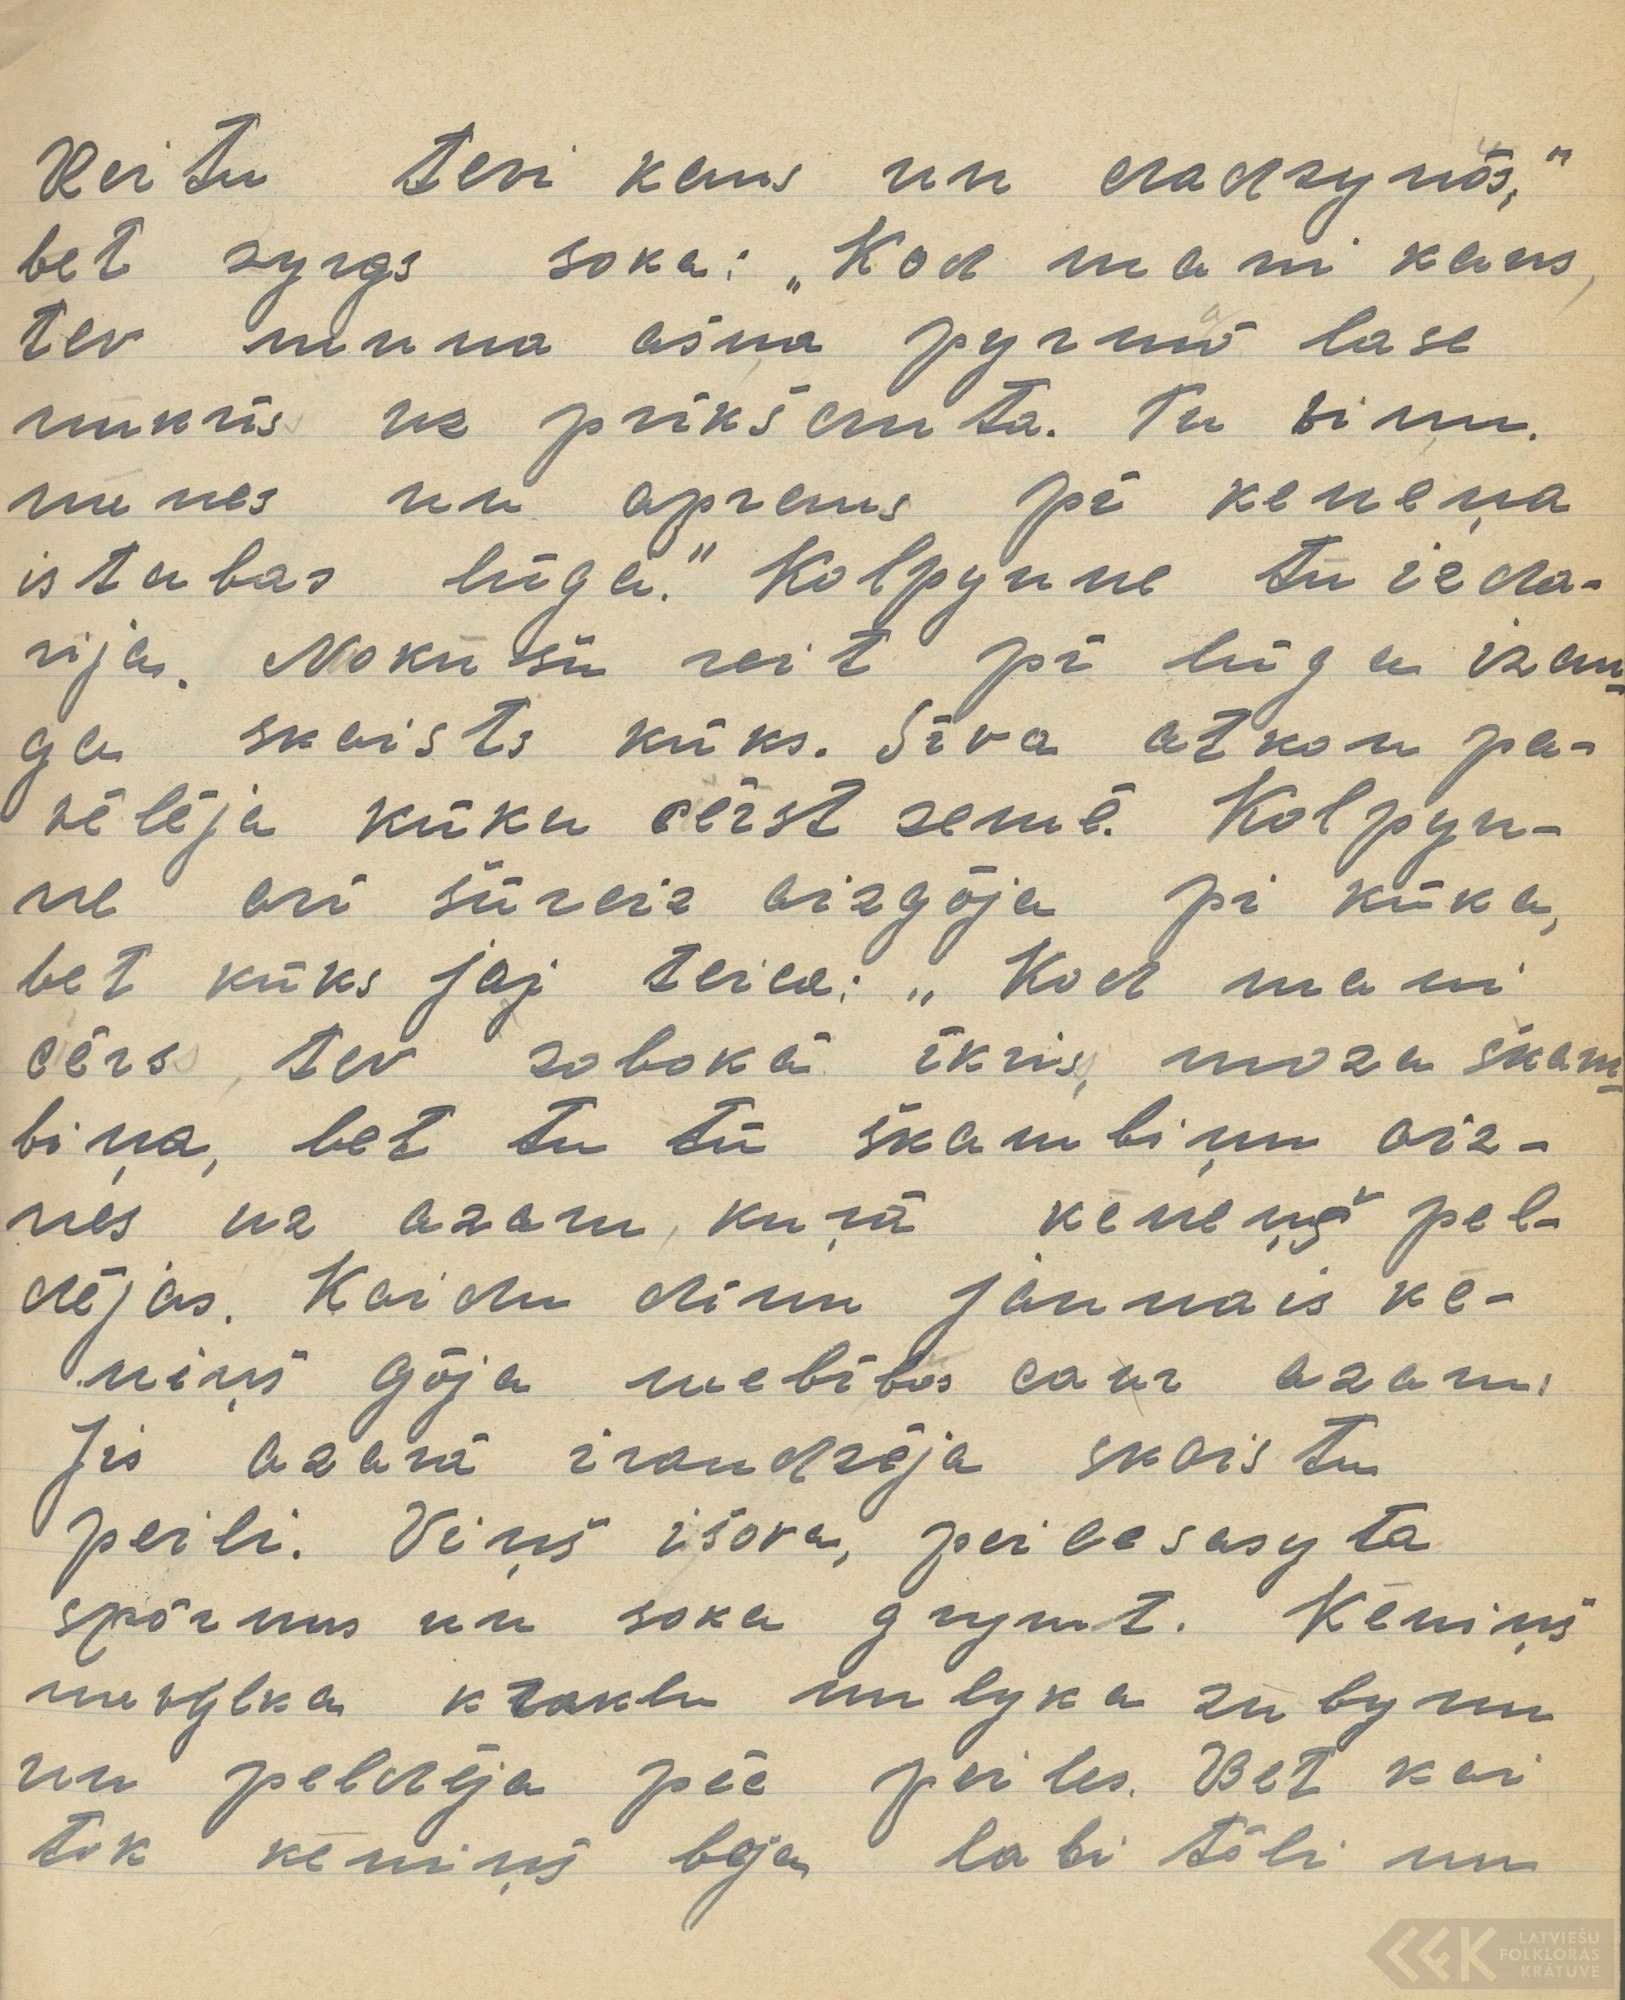 Reitu tevi kaus un dadzynōs,"
bet zyrgs soka: „Kod mani kaus,
tev muna ašņa pyrmō lase
nūkris uz prīkšauta. Tu
nūnes un apraus pi keneņa
istabas lūga." Kolpynne tū izda-
rija. Nokūšū reit pī lūga izau-
ga skaists kūks. Sīva atkon pa-
vēlēja kūku cērst zemē. Kolpyn-
ne ari šūreiz aizgōja pi kūka,
bet kūks jaj teica: „Kod mani
cērs, tev zobokā īkris, moza škam-
biņa, bet tu tū škambiņu aiz-
nes uz azaru, kuŗā kēneņš pel-
dējas. Kaidu dīnu jaunais kē-
niņš gōja medībōs caur azaru.
Jis azarā īraudzēja skaistu
peili. Viņš īšova, peile sasyta
spōrnus un soka grymt. Kēniņš
nuvylka kraklu nulyka zūbynu
un peldēja pēc peiles. Bet kai
tok kēniņš beja labi tōli nu
LATVIEŠU
FOLKLORAS
KRĀTUVE